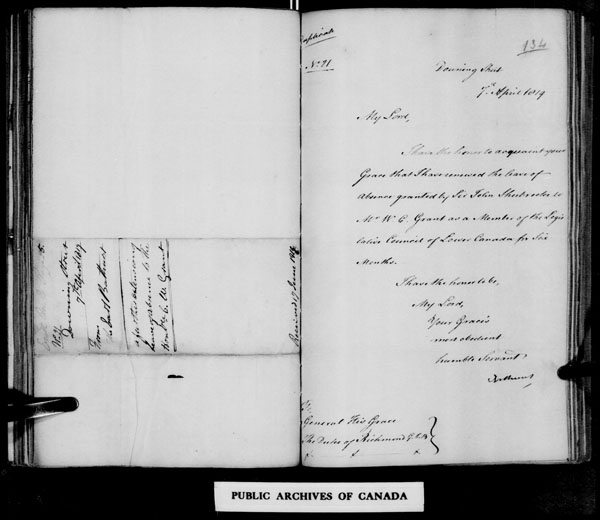 Duplicate
No. 21
134
Downing Street
7th April 1819
My Lord,
I have the honor to acquaint your
Grace that I have renewed the leave of
Absence granted by Sir John Sherbrooke to
Mr. W. C. Grant as a Member of the Legis
lative Council of Lower Canada for Six
Months.
I have the honor to be,
My Lord,
Your Grace's
most obedient
humble Servant,
Bathurst
To
General His Grace
The Duke of Richmond G.C.B.
Downing Street
7th April 1819
From
Earl Bathurst
leave of absence to the
Honble C. W. Grant
Received 19 June 1819
PUBLIC ARCHIVES OF CANADA